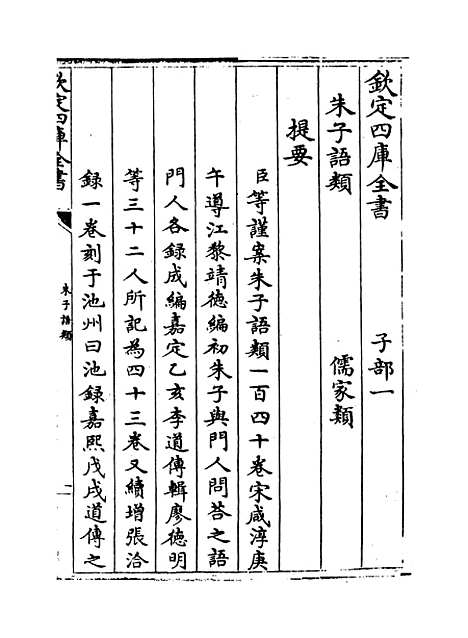 欽定四庫全書 子部一
朱子語類 儒家類
提要
臣等謹案朱子語類一百四十卷宋咸淳庚
午導江黎靖德編初朱子與門人問答之語
門人各録成編嘉定乙亥李道傳輯廖德明
等三十二人所記為四十三卷又續增張洽
録一卷刻于池州曰池録嘉熙戊戌道傳之
欽定四庫全書
朱子語類